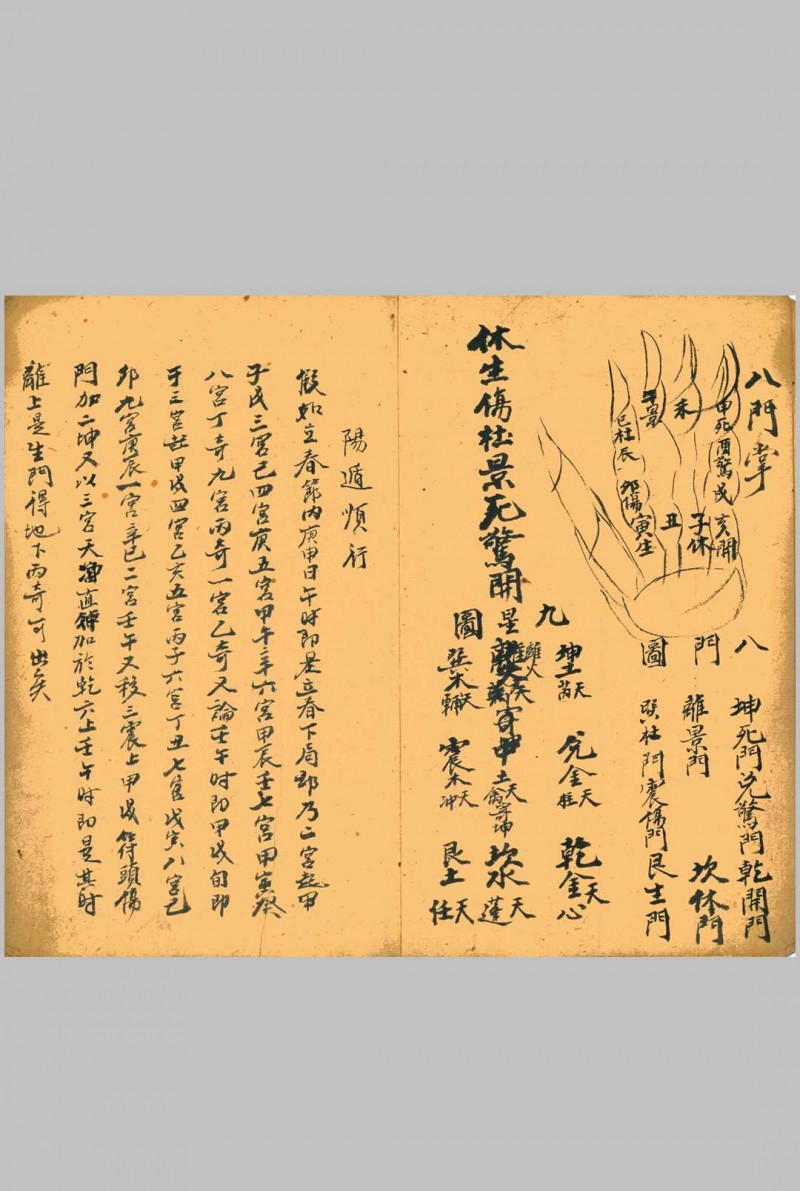 八門掌
申死酉驚戌亥開
未
午景
巳杜辰
卯傷寅生
丑
子休
八門圖
坤死門兌驚門乾開門
離景門 坎休門
巽杜門震傷門艮生門
休生傷杜景死驚開
九星圖
坤土天芮 兌金天柱 乾金天心
離火天 寄中土天禽寄坤 坎水天蓬
巽木天輔 震木天冲 艮土天任
陽遁順行
假如立春節內庚申日午時即是立春下局即乃二宮起甲
子戊三宮己四宮庚五宮甲午辛六宮甲辰壬七宮甲寅癸
八宮丁奇九宮丙奇一宮乙奇又論壬午時即甲戌旬即
于三宮起甲戌四宮乙亥五宮丙子六宮丁丑七宮戊寅八宮己
卯九宮庚辰一宮辛巳二宮壬午又移三震上甲戌符頭傷
門加二坤又以三宮天冲直符加於乾六上壬午時即是其時
離上是生門得地下丙奇可出矣